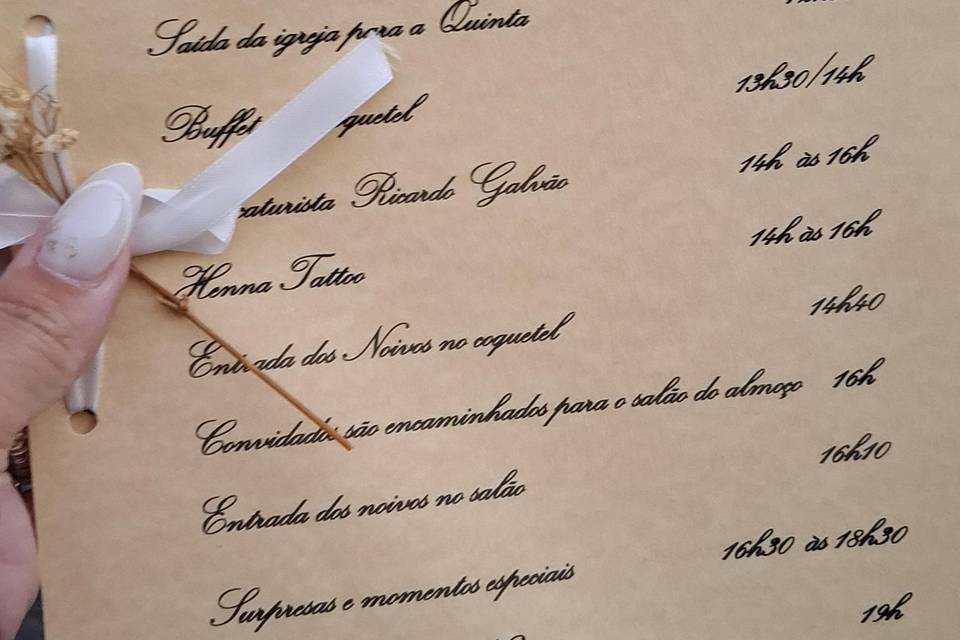 Saída da igreja para a Quinta
Buffet 13h30/14h
Ricardo Galvão 14h às 16h
Henna Tattoo 14h às 16h
Entrada dos Noivos no coquetel 14h40
Convidados são encaminhados para o salão do almoço 16h
Entrada dos noivos no salão 16h10
Surpresas e momentos especiais 16h30 às 18h30
19h